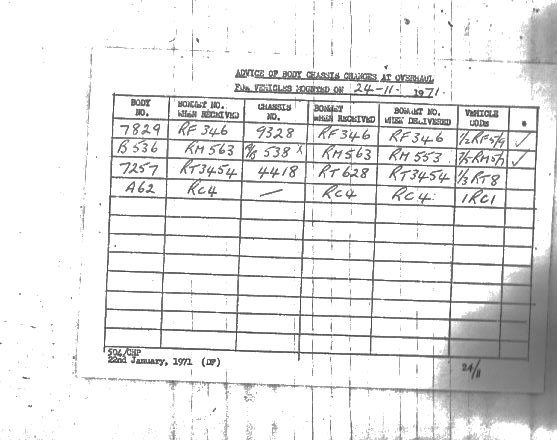 ADVICE OF BODY CHASSIS CHANGES AT OVERHAUL
FOR VEHICLES MOUNTED ON 24-11- 1971.
BODY NO. BONNET NO. WHEN RECEIVED CHASSIS NO. BONNET WHEN RECEIVED BONNET NO. WHEN DELIVERED VEHICLE CODE *
7829 RF346 9328 RF346 RF346 1/2RF5/9 ✓
B536 RM563 538 x RM563 RM553 RM5/7 ✓
7257 RT3454 4418 RT628 RT3454 1/3RT8
A62 RC4 — RC4 RC4 1RC1
504/CHP
22nd January, 1971 (DF)
24/11